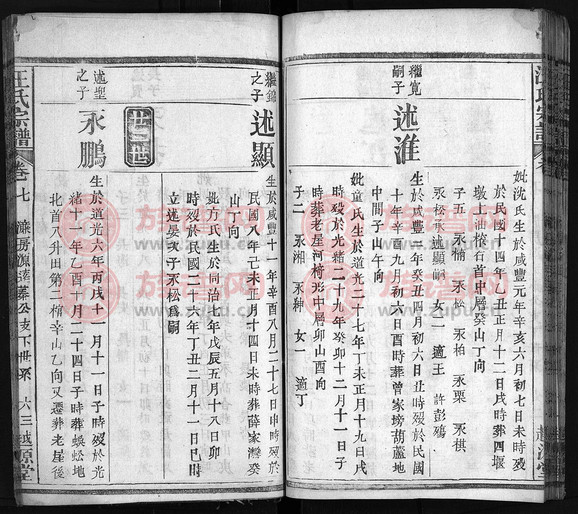 妣沈氏生於咸豐元年辛亥六月初七日未時歿
於民國十四年乙丑正月十二日戌時葬四堰
墩上油榨石首中層癸山丁向
子五 永楠 永松 永柏 永栗 永棋
永松承述顯嗣 女一 適王 許彭殤
繼寬
嗣子
述淮
生於咸豐三年癸丑四月初六日丑時歿於民國
十年辛酉九月初六日酉時葬曾家塝葫蘆地
中間子山午向
妣童氏生於道光二十七年丁未正月十九日戌
時歿於光緒二十九年癸卯十二月十一日子
時葬老屋河椅形中層卯山酉向
子二 永湘 永种 女一 適丁
繼錦
之子
述顯
生於咸豐十一年辛酉八月二十七日申時歿於
民國八年己未正月十四日未時葬薛家灣癸
山丁向
妣方氏生於同治七年戊辰五月十八日卯
時歿於民國二十六年丁丑二月十一日巳時
立述晏次子永松爲嗣
廿二世
述聖
之子
永鵬
生於道光六年丙戌十一月十一日子時歿於光
緒十一年乙酉十月二十四日子時葬蜈蚣地
北首八升田第二椿辛山乙向又遷葬老屋後
汪氏宗譜
卷七
公支下世系
六三
越源堂
族譜網
www.zupu.cn